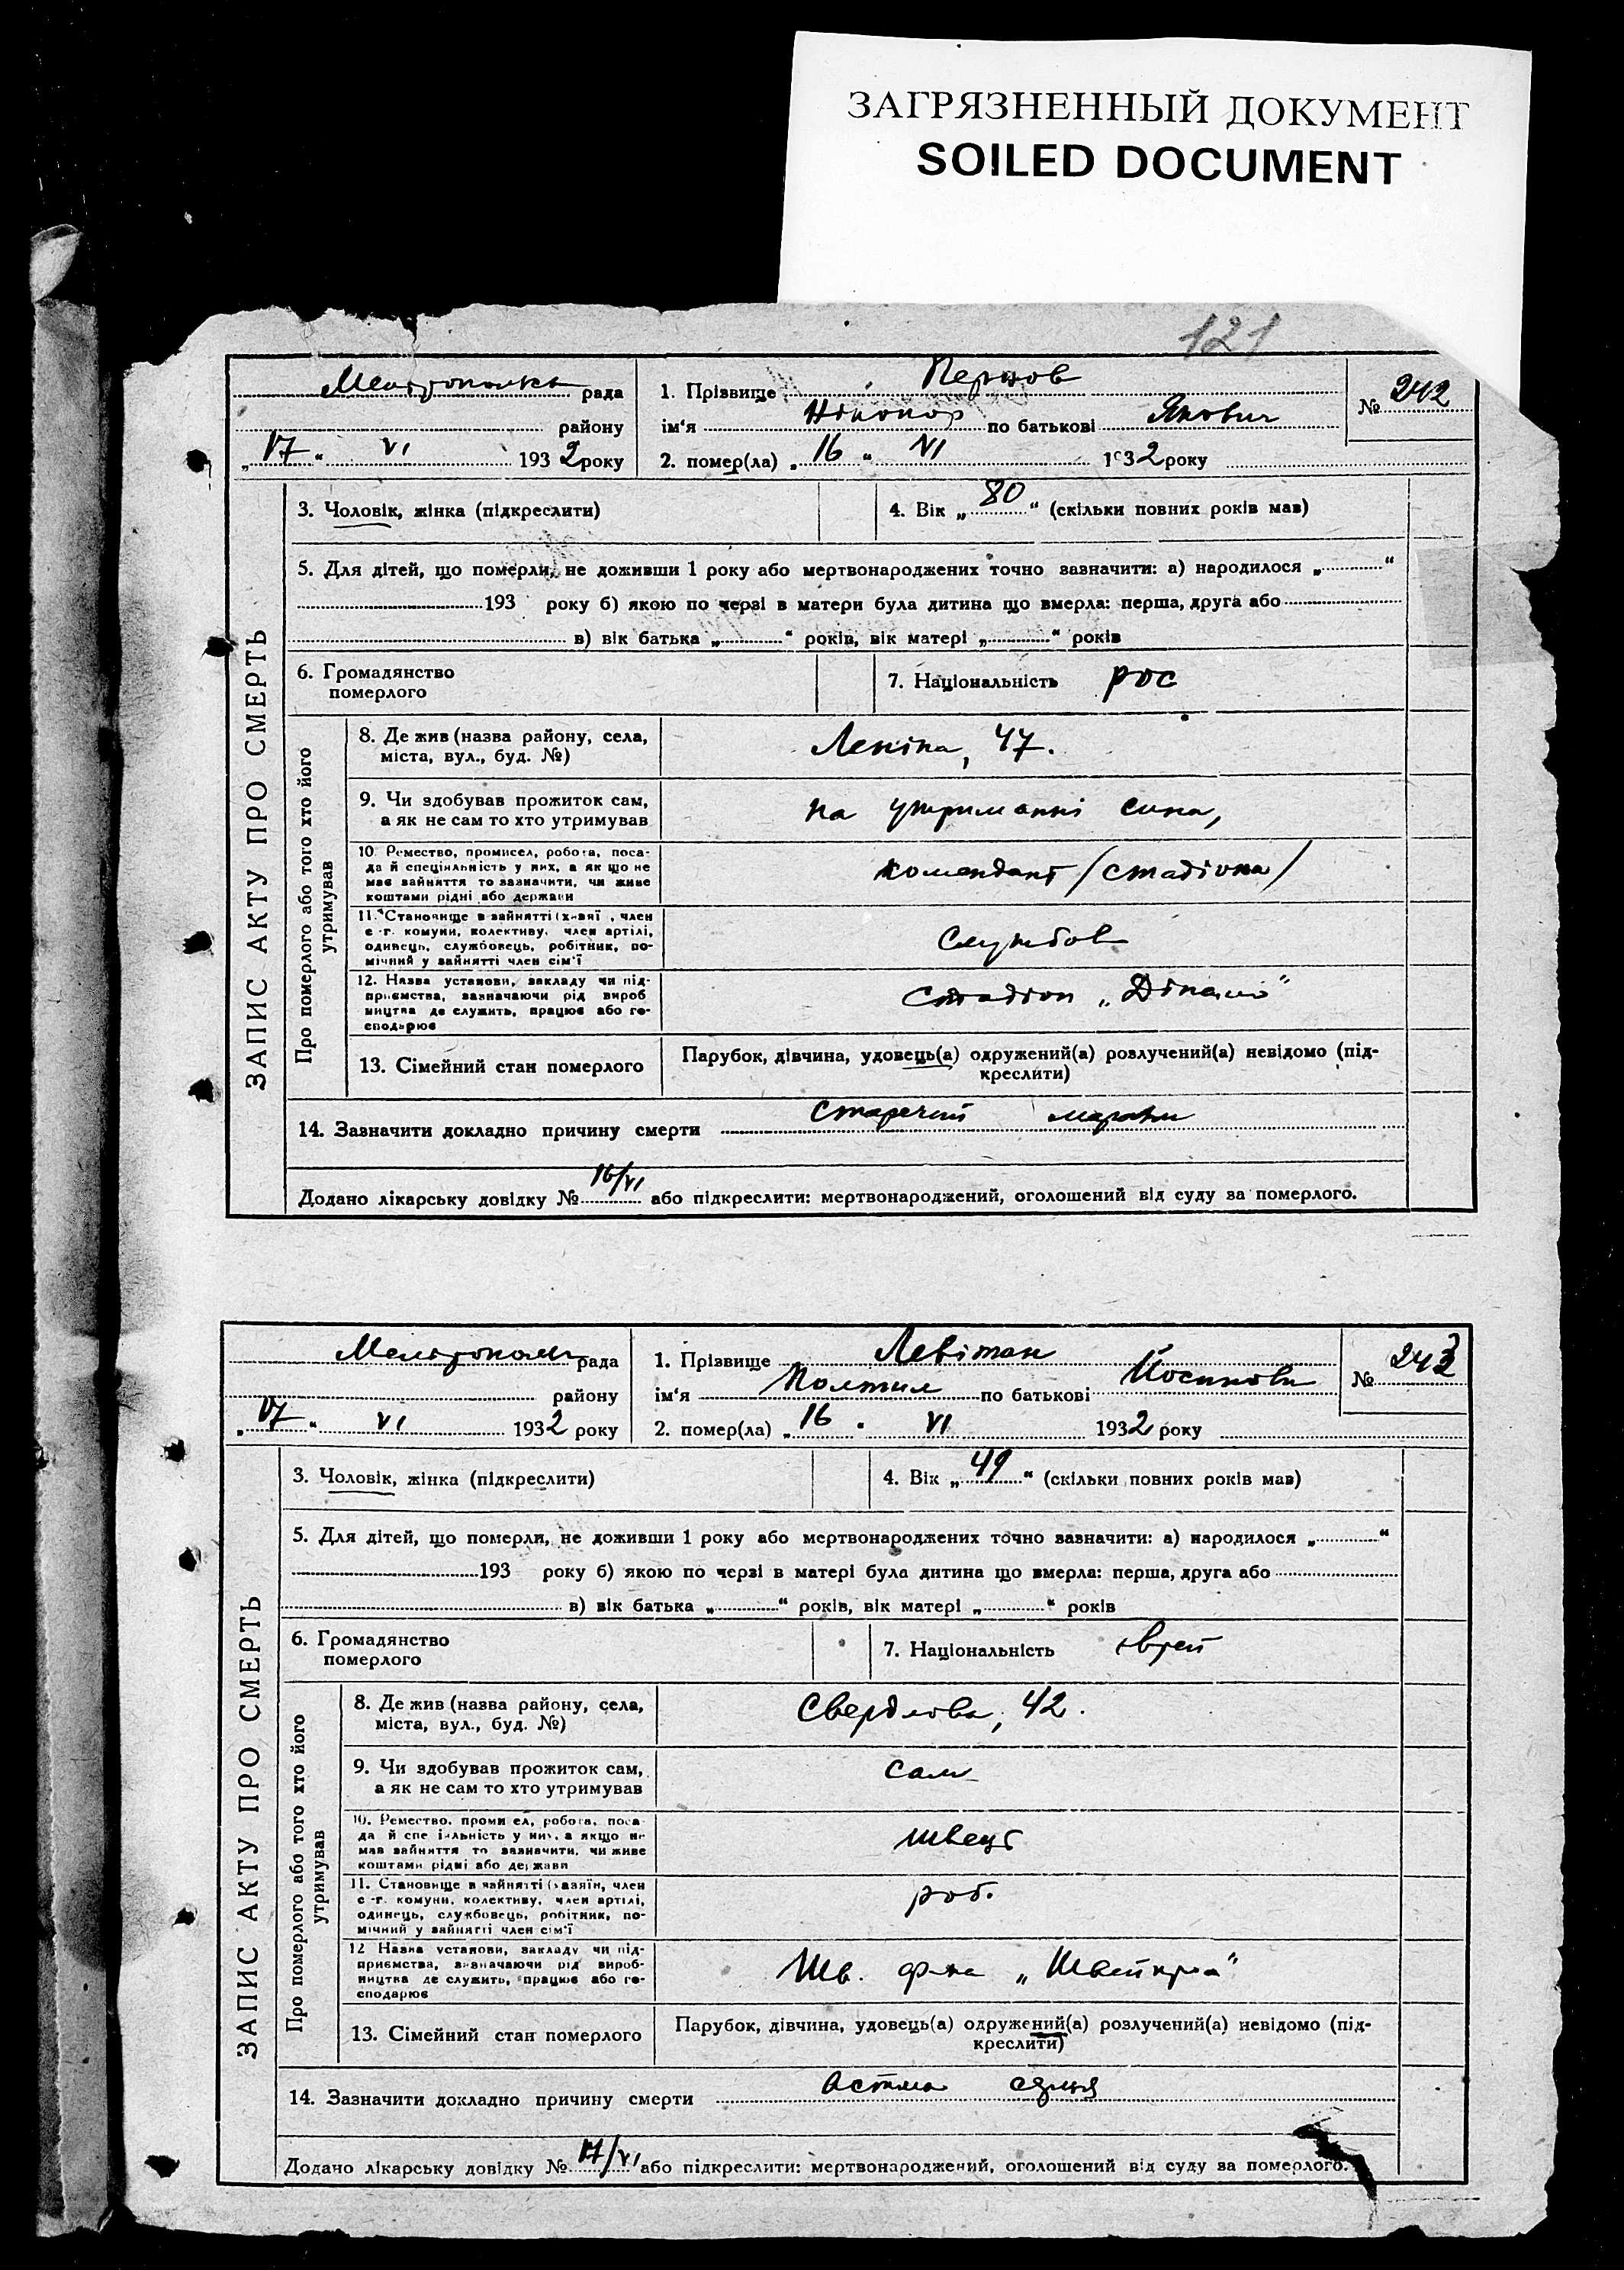 ЗАГРЯЗНЕННЫЙ ДОКУМЕНТ
SOILED DOCUMENT
121
рада
1. Прізвище Перцов
№ 242
району
ім'я Ніконор по батькові Якович
„17“ VI 1932 року
2. помер(ла) „16“ VI 1932 року
ЗАПИС АКТУ ПРО СМЕРТЬ
3. Чоловік, жінка (підкреслити)
4. Вік „80“ (скільки повних років мав)
5. Для дітей, що померли, не доживши 1 року або мертвонароджених точно зазначити: а) народилося „ “
193 року б) якою по черзі в матери була дитина що вмерла: перша, друга або
в) вік батька „ “ років, вік матері „ “ років
6. Громадянство
померлого
7. Національність рос
Про померлого або того хто його
утримував
8. Де жив (назва району, села,
міста, вул., буд. №)
Леніна, 47.
9. Чи здобував прожиток сам,
а як не сам то хто утримував
на утриманні сина,
10. Ремество, промисел, робота, поса-
да й спеціяльність у них, а як що не
має зайняття то зазначити, чи живе
коштами рідні або держави
комендант /стадіона/
11. Становище в зайнятті (хазяї, член
с.-г. комуни, колективу, член артілі,
одинець, службовець, робітник, по-
мічний у зайнятті член сім'ї
Службов
12. Назва установи, закладу чи під-
приємства, зазначаючи рід вироб
ництва де служить, працює або го-
сподарює
Стадіон „Дінамо“
13. Сімейний стан померлого
Парубок, дівчина, удовець(а) одружений(а) розлучений(а) невідомо (під-
креслити)
14. Зазначити докладно причину смерти Старечий маразм
Додано лікарську довідку № 16/VI або підкреслити: мертвонароджений, оголошений від суду за померлого.
рада
1. Прізвище Левітан
№ 243
району
ім'я по батькові
„17“ VI 1932 року
2. помер(ла) „16“ VI 1932 року
ЗАПИС АКТУ ПРО СМЕРТЬ
3. Чоловік, жінка (підкреслити)
4. Вік „49“ (скільки повних років мав)
5. Для дітей, що померли, не доживши 1 року або мертвонароджених точно зазначити: а) народилося „ “
193 року б) якою по черзі в матері була дитина що вмерла: перша, друга або
в) вік батька „ “ років, вік матері „ “ років
6. Громадянство
померлого
7. Національність єврей
Про померлого або того хто його
утримував
8. Де жив (назва району, села,
міста, вул., буд. №)
Свердлова, 42.
9. Чи здобував прожиток сам,
а як не сам то хто утримував
сам
10. Ремество, промисел, робота, поса-
да й спеціяльність у них, а якщо не
мав зайняття то зазначити, чи живе
коштами рідні або держави
швець
11. Становище в зайнятті (хазяїн, член
с.-г. комуни, колективу, член артілі,
одинець, службовець, робітник, по-
мічний у зайнятті член сім'ї
роб.
12. Назва установи, закладу чи під-
приємства, зазначаючи рід вироб-
ництва де служить, працює або го-
сподарює
Шв. ф-ка
13. Сімейний стан померлого
Парубок, дівчина, удовець(а) одружений(а) розлучений(а) невідомо (під-
креслити)
14. Зазначити докладно причину смерти Астма
Додано лікарську довідку № 17/VI або підкреслити: мертвонароджений, оголошений від суду за померлого.